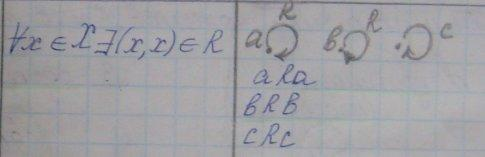 ∀x ∈ X ∃(x,x) ∈ R
a R в R c
aRa
вRв
cRc